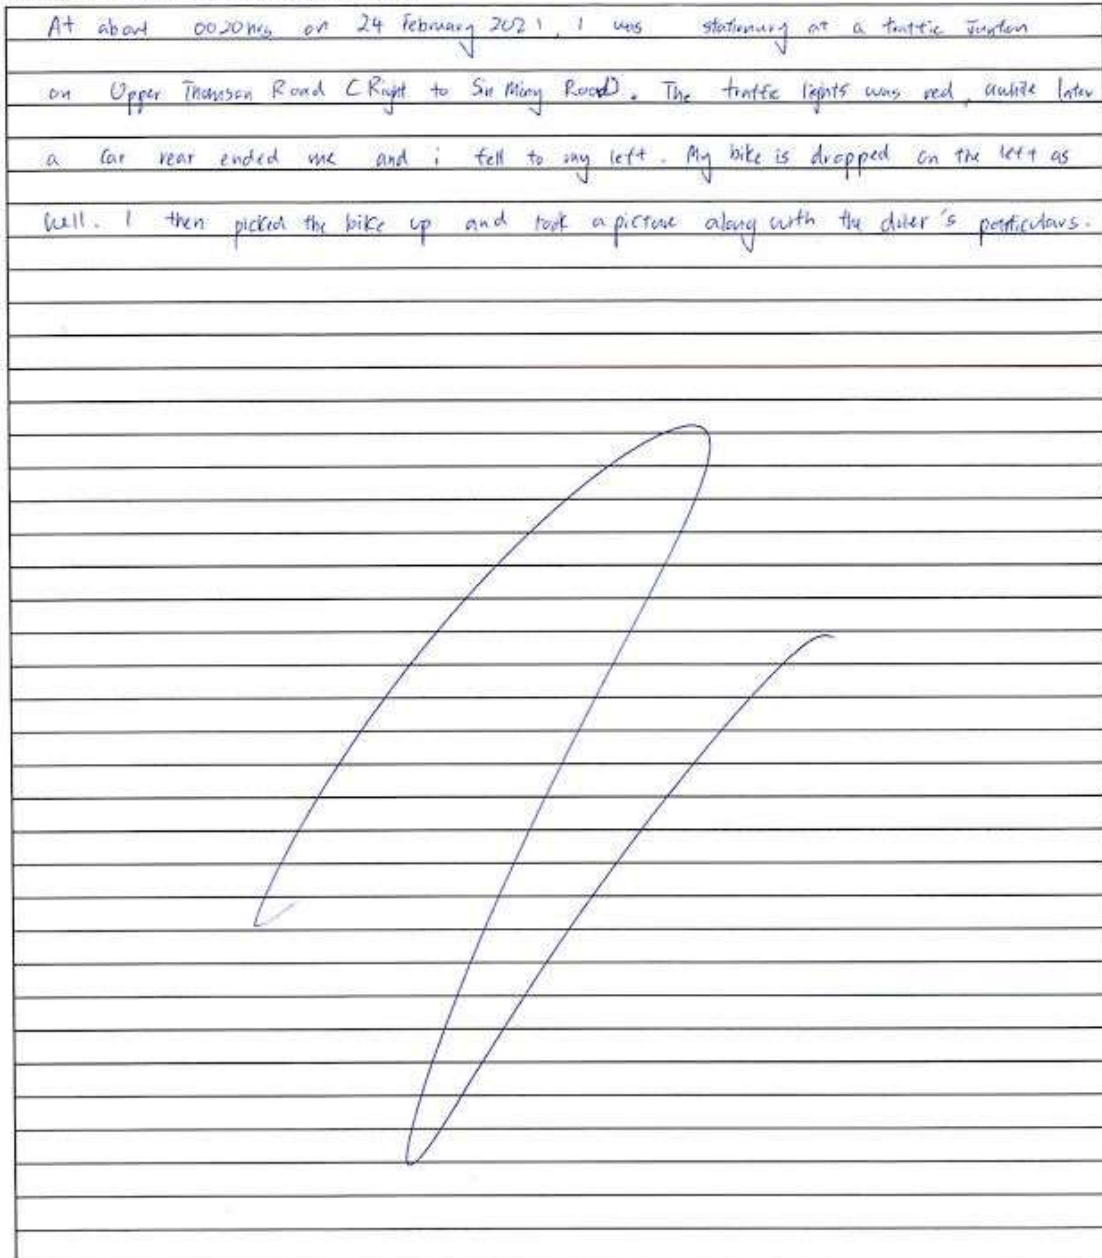 At about 0020hrs on 24 February 2021, I was stationary at a traffic junction
on Upper Thomson Road (Right to Sin Ming Road). The traffic lights was red, awhile later
a car rear ended me and i fell to my left. My bike is dropped on the left as
well. I then picked the bike up and took a picture along with the driver's particulars.